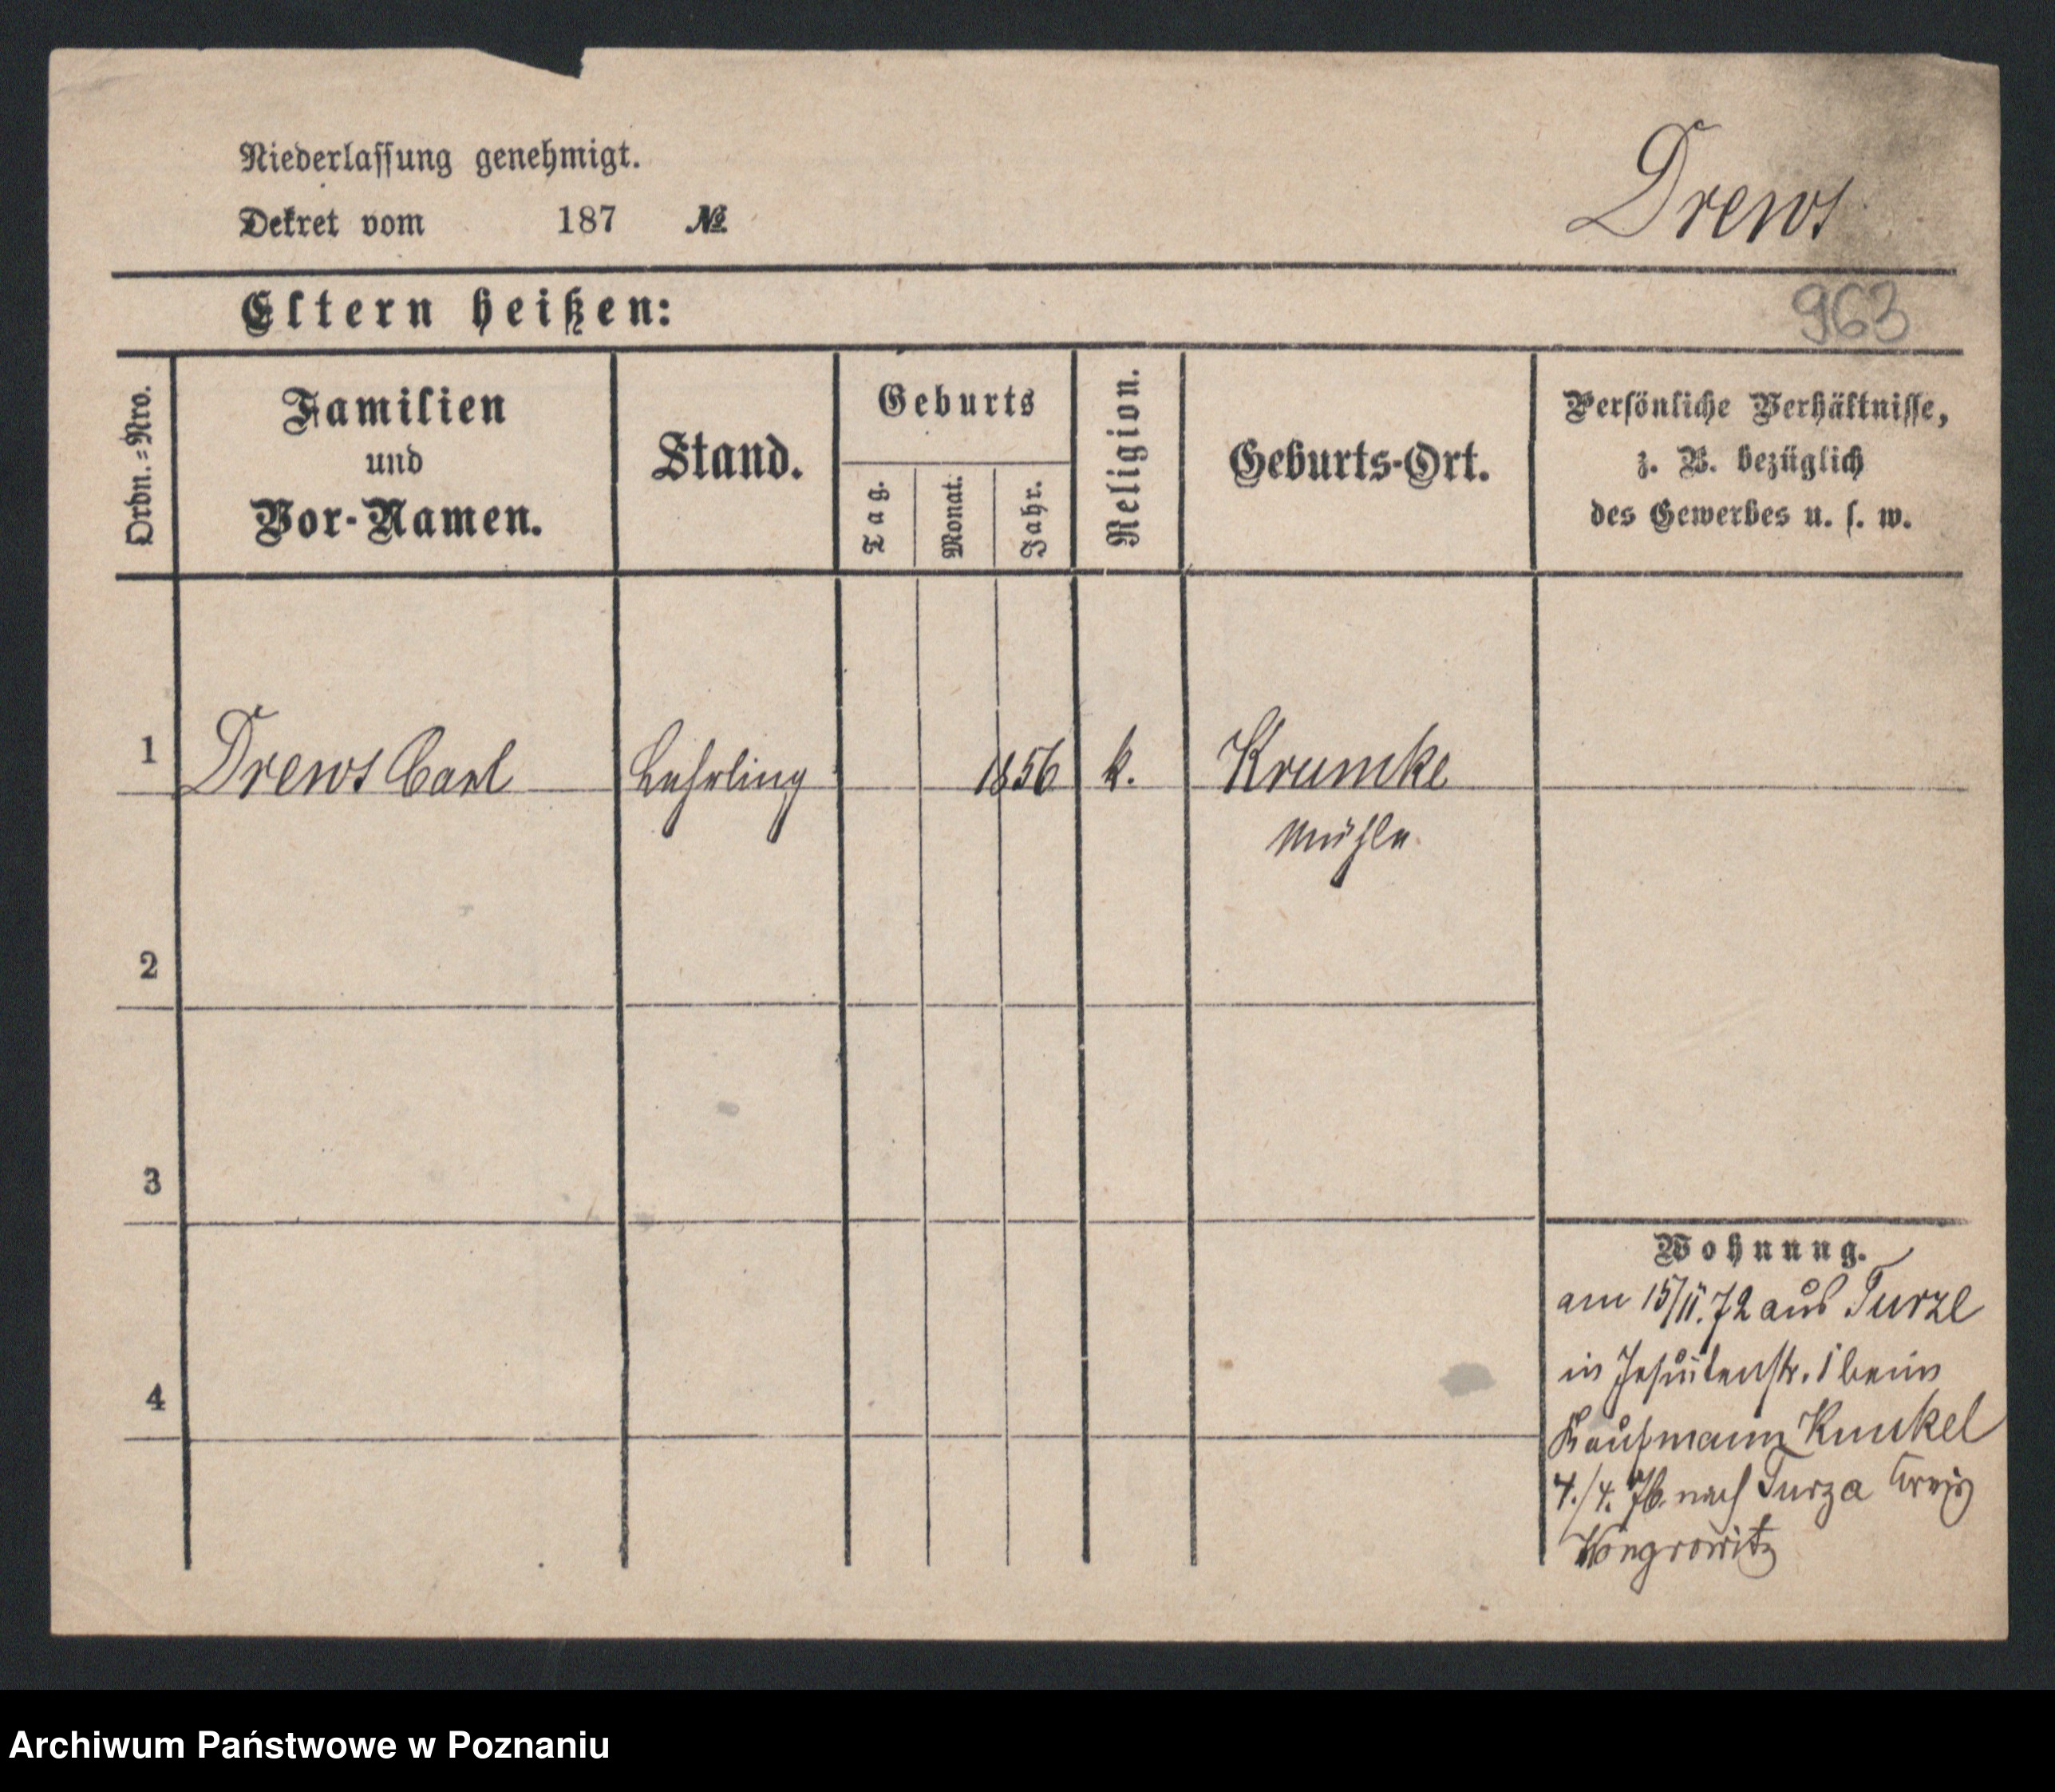 Niederlassung genehmigt.
Dekret vom 187 №
Drews
Eltern heißen:
963
Ordn.=Nro.
Familien
und
Vor-Namen.
Stand.
Geburts
Tag.
Monat.
Jahr.
Religion.
Geburts-Ort.
Persönliche Verhältnisse,
z. B. bezüglich
des Gewerbes u. s. w.
1 Drews Carl Lehrling 1856 k. Krumke
Mühle
2
3
4
Wohnung.
am 15/II. 72 aus Turze
in Jesuitenstr. 1 beim
Kaufmann Kunkel
4./4. 76. nach Turza Kreis
Wongrowitz
Archiwum Państwowe w Poznaniu